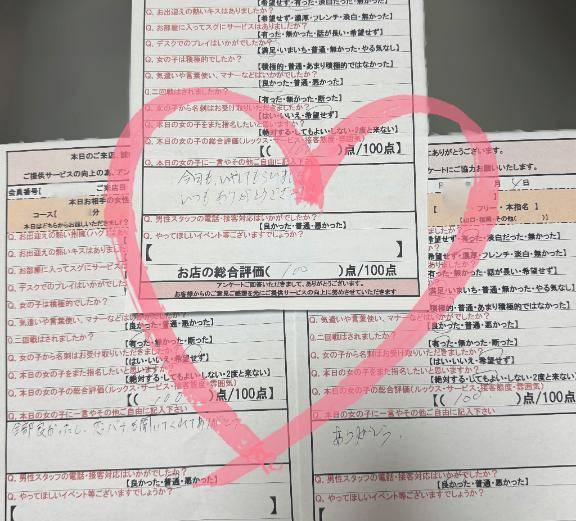 【希望せず・有った・淡白・無かった】
Q. お出迎えの熱いキスはありましたか?
【希望せず・濃厚・フレンチ・淡白・無かった】
Q. お部屋に入ってスグにサービスはありましたか?
【有った・無かった・話が長い・希望せず】
Q. デスクでのプレイはいかがでしたか?
【満足・いまいち・普通・無かった・やる気なし】
Q. 女の子は積極的でしたか?
【積極的・普通・あまり積極的ではなかった】
Q. 気遣いや言葉使い、マナーなどはいかがでしたか?
【良かった・普通・悪かった】
Q.二回戦はされましたか?
【有った・無かった・断った】
Q. 女の子から名刺はお受け取りいただきましたか?
【はい・いいえ・希望せず】
Q. 本日の女の子をまた指名したいと思いますか?
【絶対する・してもよい・しない・2度と来ない】
Q. 本日の女の子の総合評価(ルックス・サービス・接客態度・雰囲気)
)点/100点】
Q. 本日の女の子に一言やその他ご自由に記入下さい
今回も
いつもありがとうございます
Q. 男性スタッフの電話・接客対応はいかがでしたか?
【良かった・普通・悪かった】
Q. やってほしいイベント等ございますでしょうか?
【 】
お店の総合評価( 100 )点/100点
アンケートご回答いただきまして、ありがとうございます。
お客様からのご意見ご感想を元にご提供サービスの向上に努めさせていただきます
本日のご来店、誠
ご提供サービスの向上の為、アン
会員番号【
ご来店日
本日お相手の女性
コース【 分
本日はどちらからお越しいただきまし
Q. お出迎えの熱い抱擁(ハグ
Q. お出迎えの熱いキスはありま
Q. お部屋に入ってスグにサービ
Q. デスクでのプレイはいかがで
Q. 女の子は積極的でしたか?
Q. 気遣いや言葉使い、マナーなどはいかがでしたか?
【良かった・普通・悪かった】
Q.二回戦はされましたか?
【有った・無かった・断った】
Q. 女の子から名刺はお受け取りいただきましたか?
【はい・いいえ・希望せず】
Q. 本日の女の子をまた指名したいと思いますか?
【絶対する・してもよい・しない・2度と来ない】
Q. 本日の女の子の総合評価(ルックス・サービス・接客態度・雰囲気)
【( 100 )点/100点】
Q. 本日の女の子に一言やその他ご自由に記入下さい
全部良かったし、恋バナを聞いてくれてありがとう
Q. 男性スタッフの電話・接客対応はいかがでしたか?
【良かった・普通・悪かった】
Q. やってほしいイベント等ございますでしょうか?
【 】
ありがとうございます。
ケートにご協力お願いいたします。
月 4日
フリー・本指名】
【山口・福岡・その他( )】
せず・有った・淡白だった・無かった】
希望せず・濃厚・フレンチ・淡白・無かった】
有った・無かった・話が長い・希望せず】
満足・いまいち・普通・無かった・やる気なし】
【積極的・普通・あまり積極的ではなかった】
Q. 気遣いや言葉使い、マナーなどはいかがでしたか?
【良かった・普通・悪かった】
Q.二回戦はされましたか?
【有った・無かった・断った】
Q. 女の子から名刺はお受け取りいただきましたか?
【はい・いいえ・希望せず】
Q. 本日の女の子をまた指名したいと思いますか?
【絶対する・してもよい・しない・2度と来ない】
Q. 本日の女の子の総合評価(ルックス・サービス・接客態度・雰囲気)
【( 100 )点/100点】
Q. 本日の女の子に一言やその他ご自由に記入下さい
ありがとう。
Q. 男性スタッフの電話・接客対応はいかがでしたか?
【良かった・普通・悪かった】
Q. やってほしいイベント等ございますでしょうか?
【 】